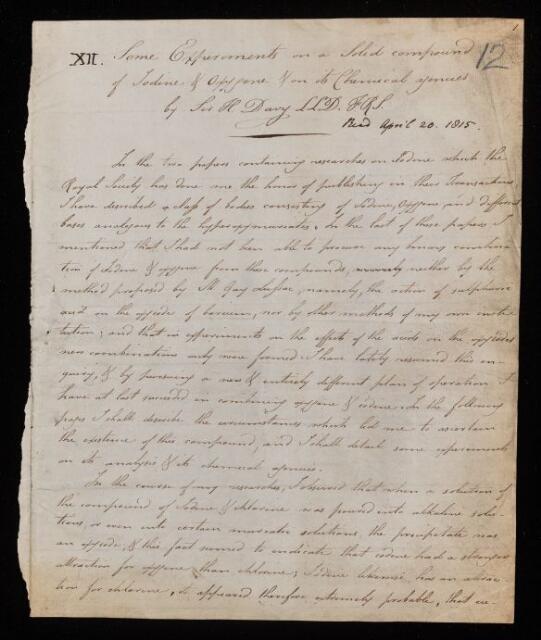 1
12
XII. Some Experiments on a Solid compound
of Iodine & Oxygene & on its Chemical agencies
by Sir H Davy LLD. FRS.
Read April 20. 1815.
In the two papers containing researches on Iodine which the
Royal Society has done me the honor of publishing in their Transactions
I have described a class of bodies consisting of Iodine, Oxygene and different
bases analogous to the hyperoxymuriates. In the last of these papers I
mentioned that I had not been able to procure any binary combina-
tion of Iodine & oxygene from these compounds, neither by the
method proposed by M Gay Lussac, namely, the action of sulphuric
acid on the oxyiode of barium, nor by other methods of my own insti-
tution; and that in experiments on the effects of the acids on the oxyiodes
new combinations only were formed. I have lately resumed this en-
quiry, & by pursuing a new & entirely different plan of operation I
have at last succeeded in combining oxygene & iodine. In the following
pages I shall describe the circumstances which led me to ascertain
the existence of this compound, and I shall detail some experiments
on its analysis & its chemical agencies.
In the course of my researches, I observed that when a solution of
the compound of Iodine & chlorine was poured into alkaline solu-
tions, or even into certain muriatic solutions, the precipitate was
an oxyiode, & this fact seemed to indicate that iodine had a stronger
attraction for oxygene than chlorine; Iodine likewise has an attrac-
tion for chlorine, it appeared therefore extremely probable, that eu-